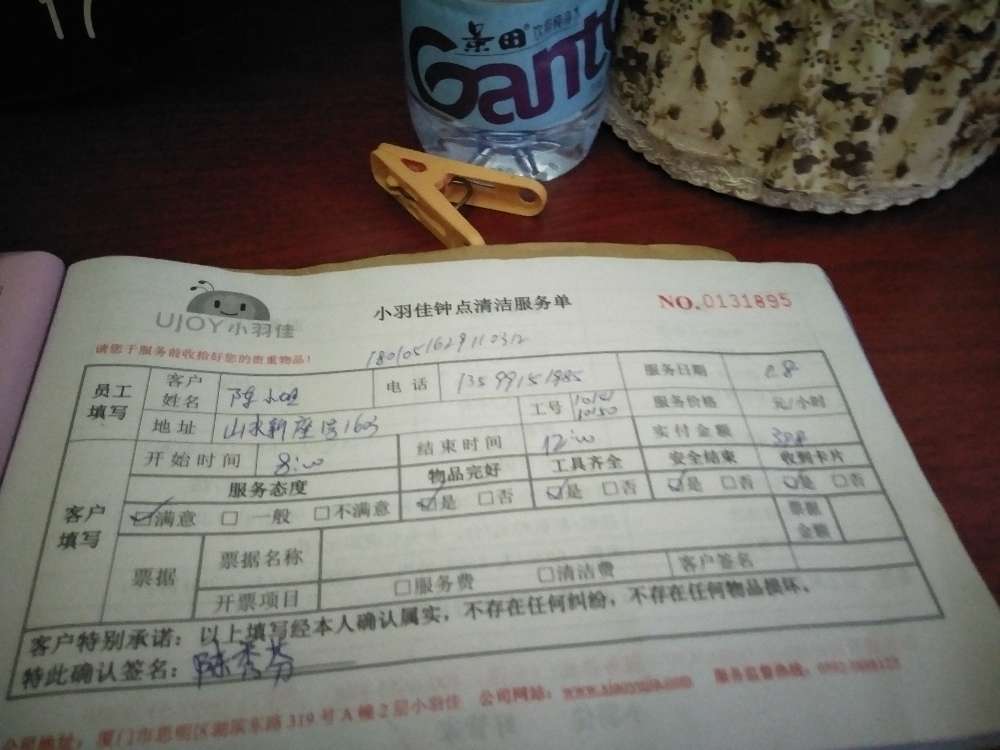 景田
饮用纯净水
Gant
UJOY小羽佳
小羽佳钟点清洁服务单
NO.0131895
请您于服务前收拾好您的贵重物品!
员工填写
客户姓名
电话
服务日期
地址
山水新座
1603
工号
服务价格
元/小时
开始时间
8:00
结束时间
12:00
实付金额
客户填写
服务态度
物品完好
工具齐全
安全结束
收到卡片
☑满意 □ 一般 □不满意
☑是 □否
☑是 □否
☑是 □否
☑是 □否
票据
票据名称
票据金额
开票项目
□服务费
□清洁费
客户签名
客户特别承诺:以上填写经本人确认属实,不存在任何纠纷,不存在任何物品损坏,
特此确认签名:陈秀芬
公司地址:厦门市思明区湖滨东路319号A幢2层小羽佳 公司网站: 服务监督热线: